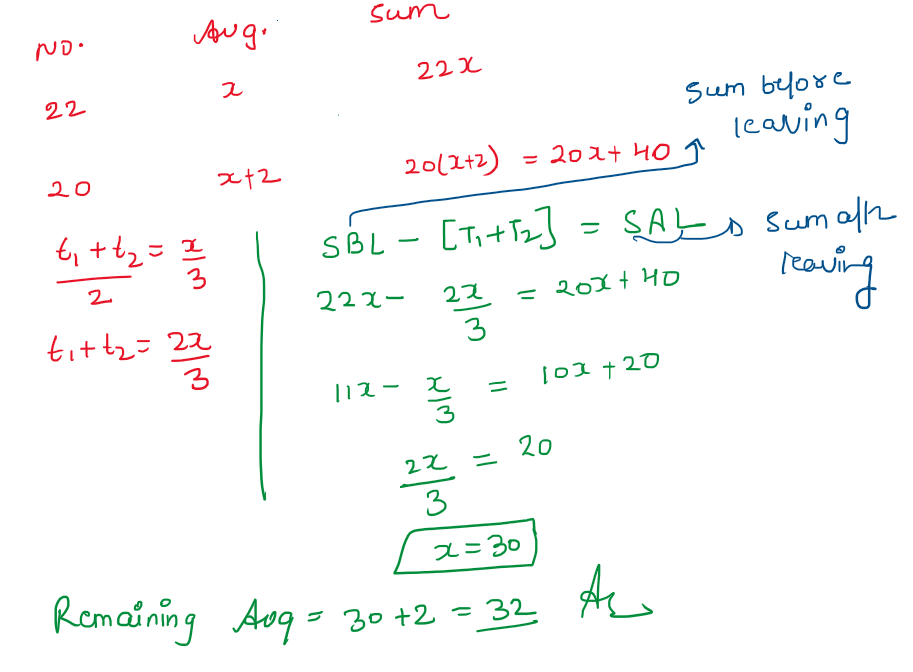 NO. Avg. Sum
22 x 22x
20 x+2 20(x+2) = 20x+40
Sum before
leaving
t₁+t₂/2 = x/3
t₁+t₂ = 2x/3
SBL - [T₁+T₂] = SAL
Sum aft
leaving
22x - 2x/3 = 20x+40
11x - x/3 = 10x+20
2x/3 = 20
x=30
Remaining Avg = 30+2 = 32